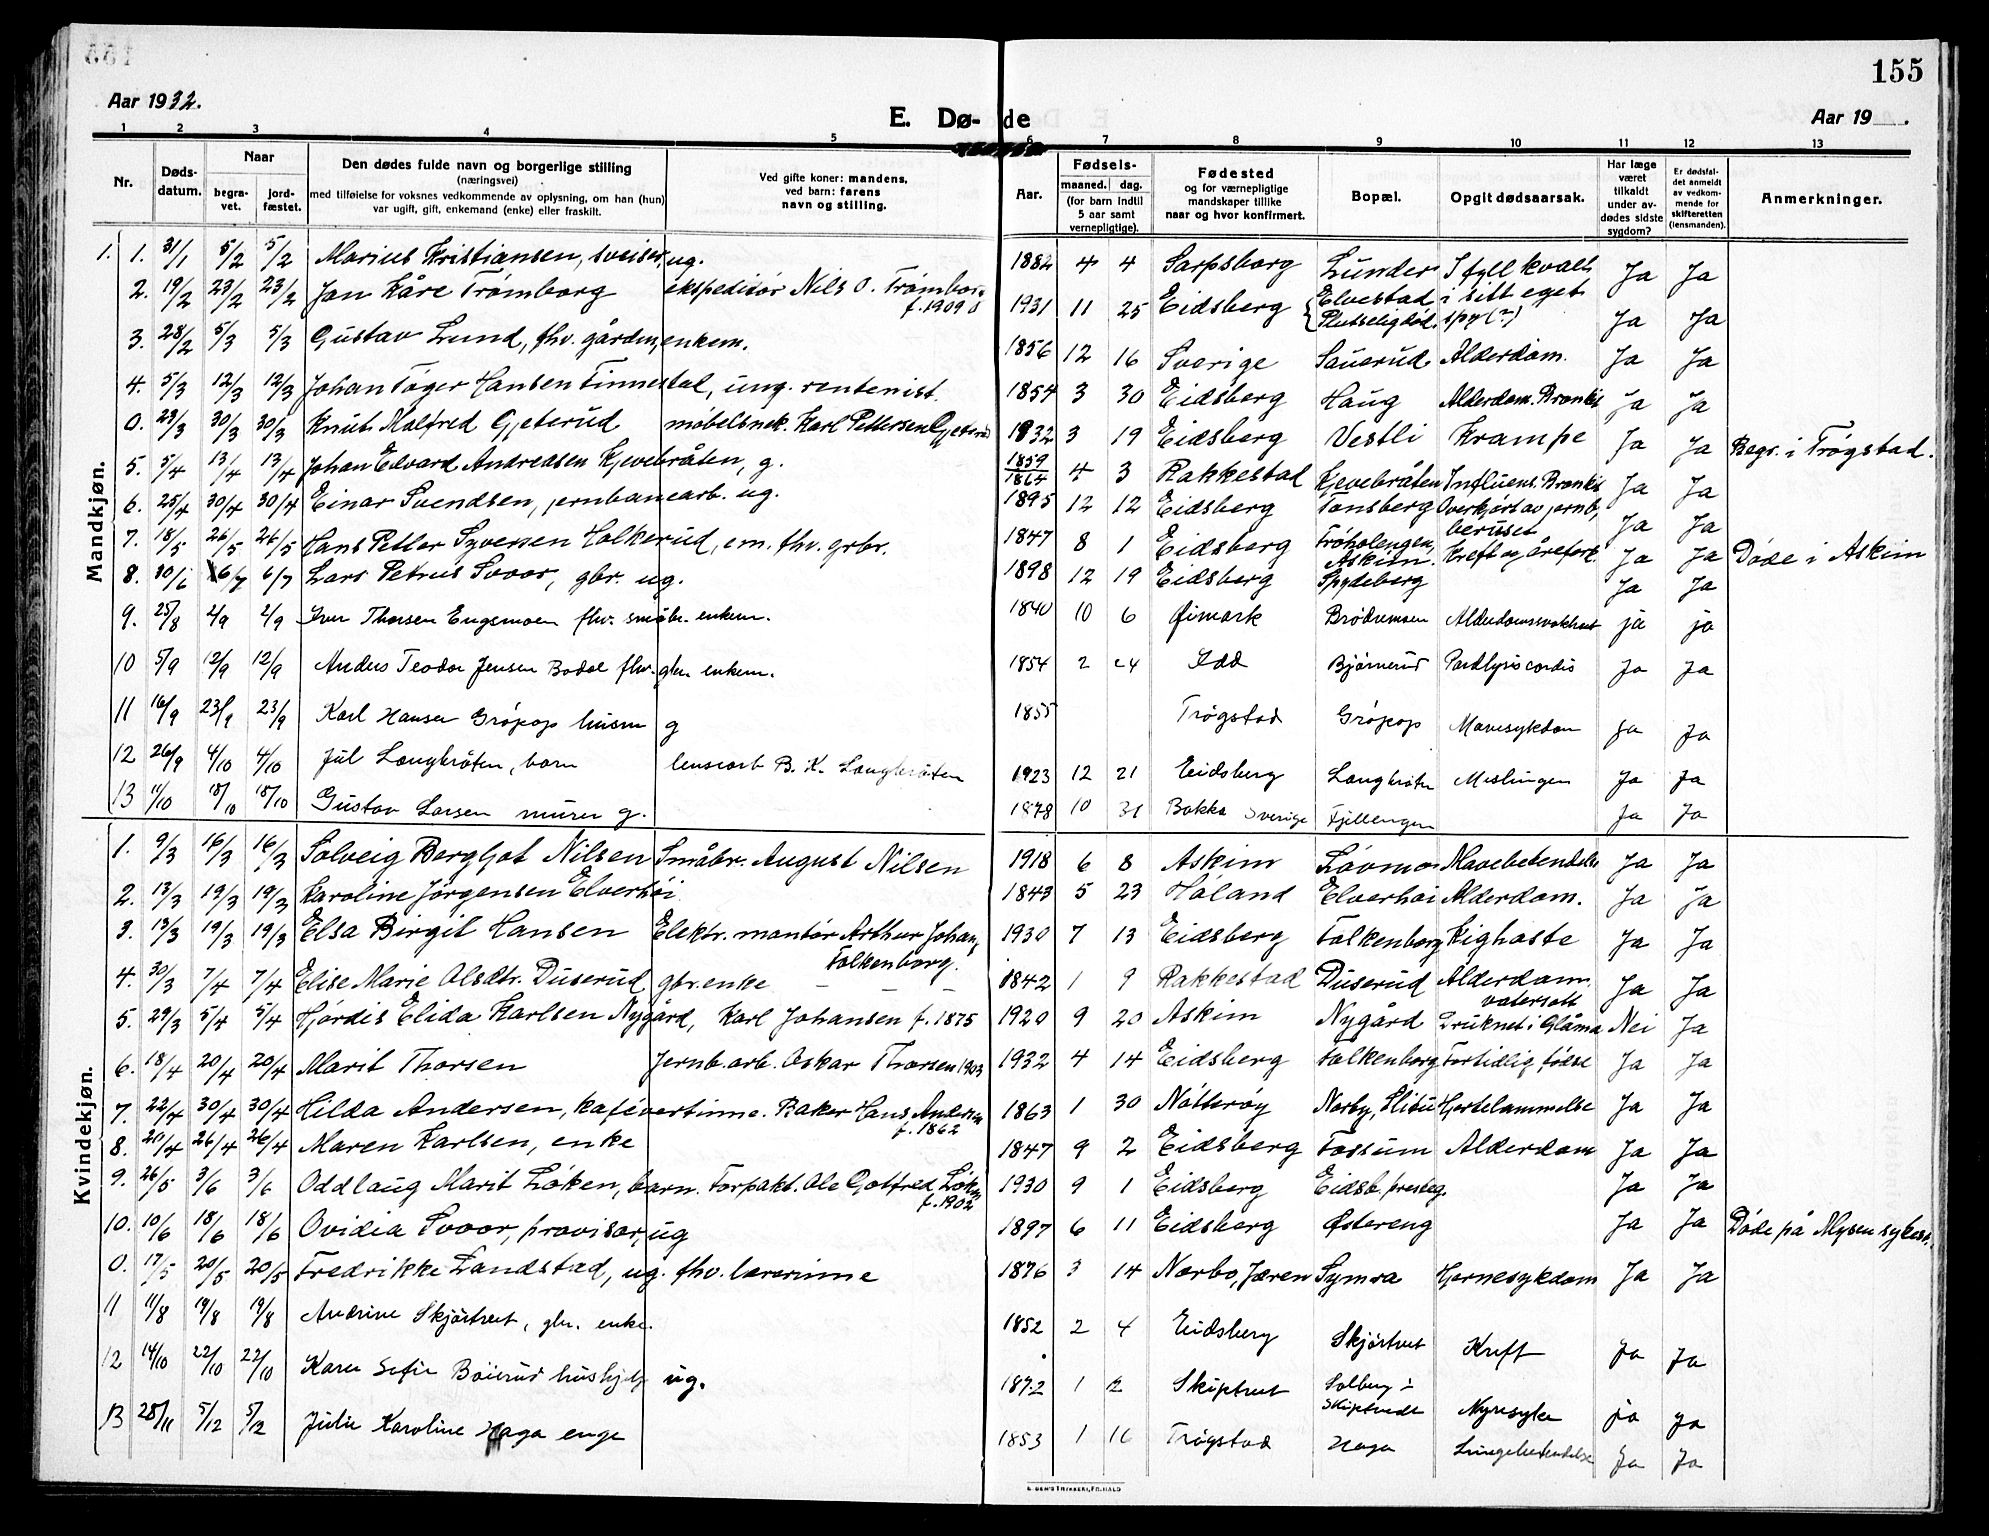 155
Aar 1932.
E. Dø- de
Aar 19 .
1 2 3 4 5 6 7 8 9 10 11 12 13
Nr. Døds-datum. Naar begra-vet. jord-fæstet. Den dødes fulde navn og borgerlige stilling (næringsvei) med tilføielse for voksnes vedkommende av oplysning, om han (hun) var ugift, gift, enkemand (enke) eller fraskilt. Ved gifte koner: mandens, ved barn: farens navn og stilling. Aar. Fødsels- maaned. dag. (for barn indtil 5 aar samt vernepligtige). Fødested og for værnepligtige mandskaper tillike naar og hvor konfirmert. Bopæl. Opgit dødsaarsak. Har læge været tilkaldt under av-dødes sidste sygdom? Er dødsfal-det anmeldt av vedkom-mende for skifteretten (lensmanden). Anmerkninger.
Mandkjøn.
1. 1. 31/1 5/2 5/2 Marius Kristiansen, sveiser, ug. 1882 4 4 Sarpsborg Lunder I fyll kvalt i sitt eget spy (?) Ja Ja
2. 19/2 23/2 23/2 Jan Kåre Trømborg ekspeditør Nils O. Trømborg f. 1909 1931 11 25 Eidsberg Elvestad Plutselig død. Ja Ja
3. 28/2 5/3 5/3 Gustav Lund, fhv. gårdm, enkem. 1856 12 16 Sverige Sauerud Alderdom. Ja Ja
4. 5/3 12/3 12/3 Johan Tøger Hansen Finnestad, ung. rentenist. 1854 3 30 Eidsberg Haug Alderdom. Bronkit Ja Ja
0. 23/3 30/3 30/3 Knut Malfred Gjeterud møbelsnek. Karl Pettersen Gjeterud 1932 3 19 Eidsberg Vestli Krampe Ja Ja Begr. i Trøgstad.
5. 5/4 13/4 13/4 Johan Edvard Andreasen Kjevebråten, g. 1859 1864 4 3 Rakkestad Kjevebråten Influens. Bronkit Ja Ja
6. 25/4 30/4 30/4 Einar Svendsen, jernbanearb. ug. 1895 12 12 Eidsberg Tønsberg Overkjørt av jernb, beruset Ja Ja
7. 18/5 26/5 26/5 Hans Petter Syversen Holkerud, em. fhv. grbr. 1847 8 1 Eidsberg Trøholengen, Askim. Kreft og årefork. Ja Ja Døde i Askim
8. 30/6 6/7 6/7 Lars Petrus Svoor, gbr. ug. 1898 12 19 Eidsberg Spydeberg Ja Ja
9. 25/8 2/9 2/9 Iver Thorsen Engsmoen fhv. småbr. enkem. 1840 10 6 Øimark Brødremoen Alderdomssvakhet ja ja
10 5/9 12/9 12/9 Anders Teodor Jensen Bodal fhv. gbr. enkem. 1854 2 24 Idd Bjørnerud Paralysis cordis Ja Ja
11 16/9 23/9 23/9 Karl Hansen Grøpop husm g 1855 Trøgstad Grøpop Mavesykdom Ja Ja
12 26/9 4/10 4/10 Jul Langbråten, barn lensearb B. K. Langbråten 1923 12 21 Eidsberg Langbråten Meslingen Ja Ja
13 11/10 18/10 18/10 Gustav Larsen murer g. 1878 10 31 Bakka Sverige Fjellengen Ja Ja
Kvindekjøn.
1. 9/3 16/3 16/3 Solveig Bergljot Nilsen Småbr. August Nilsen 1918 6 8 Askim Løvmo Mavebetendelse Ja Ja
2. 13/3 19/3 19/3 Karoline Jørgensen Elverhøi 1843 5 23 Høland Elverhøi Alderdom. Ja Ja
3. 13/3 19/3 19/3 Elsa Birgit Hansen Elektr. montør Arthur Johan, Folkenborg. 1930 7 13 Eidsberg Folkenborg Kighoste Ja Ja
4. 30/3 7/4 7/4 Elise Marie Olsdtr. Duserud gbr. enke 1842 1 9 Rakkestad Duserud Alderdom, vatersott Ja Ja
5. 29/3 5/4 5/4 Hjørdis Elida Karlsen Nygård, Karl Johansen f. 1875 1920 9 20 Askim Nygård Druknet i Glåma Nei Ja
6. 18/4 20/4 20/4 Marit Thorsen Jernb. arb. Oskar Thorsen 1903 1932 4 14 Eidsberg Folkenborg For tidlig fødse Ja Ja
7. 22/4 30/4 30/4 Hilda Andersen, kafévertinne. Baker Hans Andersen f. 1862 1863 1 30 Nøtterøy Norby, Slitu Hjertelammelse Ja Ja
8. 20/4 26/4 26/4 Maren Karlsen, enke 1847 9 2 Eidsberg Fossum Alderdom Ja Ja
9. 26/5 3/6 3/6 Oddlaug Marit Løken, barn. Forpakt. Ole Gotfred Løken f. 1902 1930 9 1 Eidsberg Eidsb. presteg. Ja Ja
10. 10/6 18/6 18/6 Ovidia Svoor, provisor, ug 1897 6 11 Eidsberg Østereng Ja Ja Døde på Mysen sykeh.
0. 17/5 20/5 20/5 Fredrikke Landstad, ug. fhv. lærerinne 1876 3 14 Nærbø, Jæren Symra Hjernesykdom Ja Ja
11 11/8 19/8 19/8 Andrine Skjørtvet, gbr. enke. 1852 2 4 Eidsberg Skjørtvet Kreft Ja Ja
12 14/10 22/10 22/10 Karen Sofie Bøierud hushjelp ug. 1872 1 12 Skiptvet Solberg i Skiptvedt Nyresyke ja ja
13 28/11 5/12 5/12 Julie Karoline Haga enge 1853 1 16 Trøgstad Haga Lungebetendelse Ja Ja